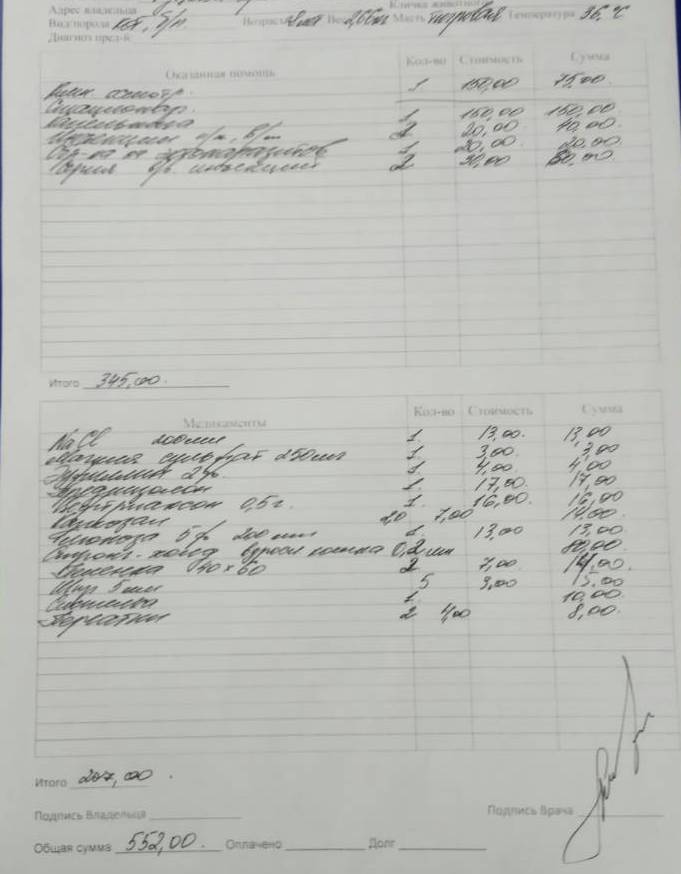 Адрес владельца
Кличка животного
Вид/порода кот, б/п. Возраст Вес Масть тигровая Температура 36, °C
Диагноз пред-й
Оказанная помощь Кол-во Стоимость Сумма
Клин. осмотр. 1 150,00 75,00
Стационар. 1 150,00 150,00
1 20,00 40,00
Инъекции п/к, в/м 20,00 20,00
Обр-ка от эктопаразитов 1
в/в инъекции 2 30,00 60,00
Итого 345,00.
Медикаменты Кол-во Стоимость Сумма
NaCl 200мл 1 13,00. 13,00
Магния сульфат 250мг 1 3,00. 3,00
Эуфиллин 1 4,00 4,00
Преднизолон 1 17,00 17,00
Цефтриаксон 0,5г. 1. 16,00. 16,00
2,0 7,00 14,00.
Глюкоза 5% 200мл 1 13,00 13,00.
Стронг-холд кошка 0,2мл 80,00.
Пеленка 40×60 2 7,00 14,00.
Шпр. 5мл 5 3,00 15,00.
Система 1. 10,00.
Перчатки 2 4,00 8,00.
Итого 207,00.
Подпись Владельца Подпись Врача
Общая сумма 552,00. Оплачено Долг